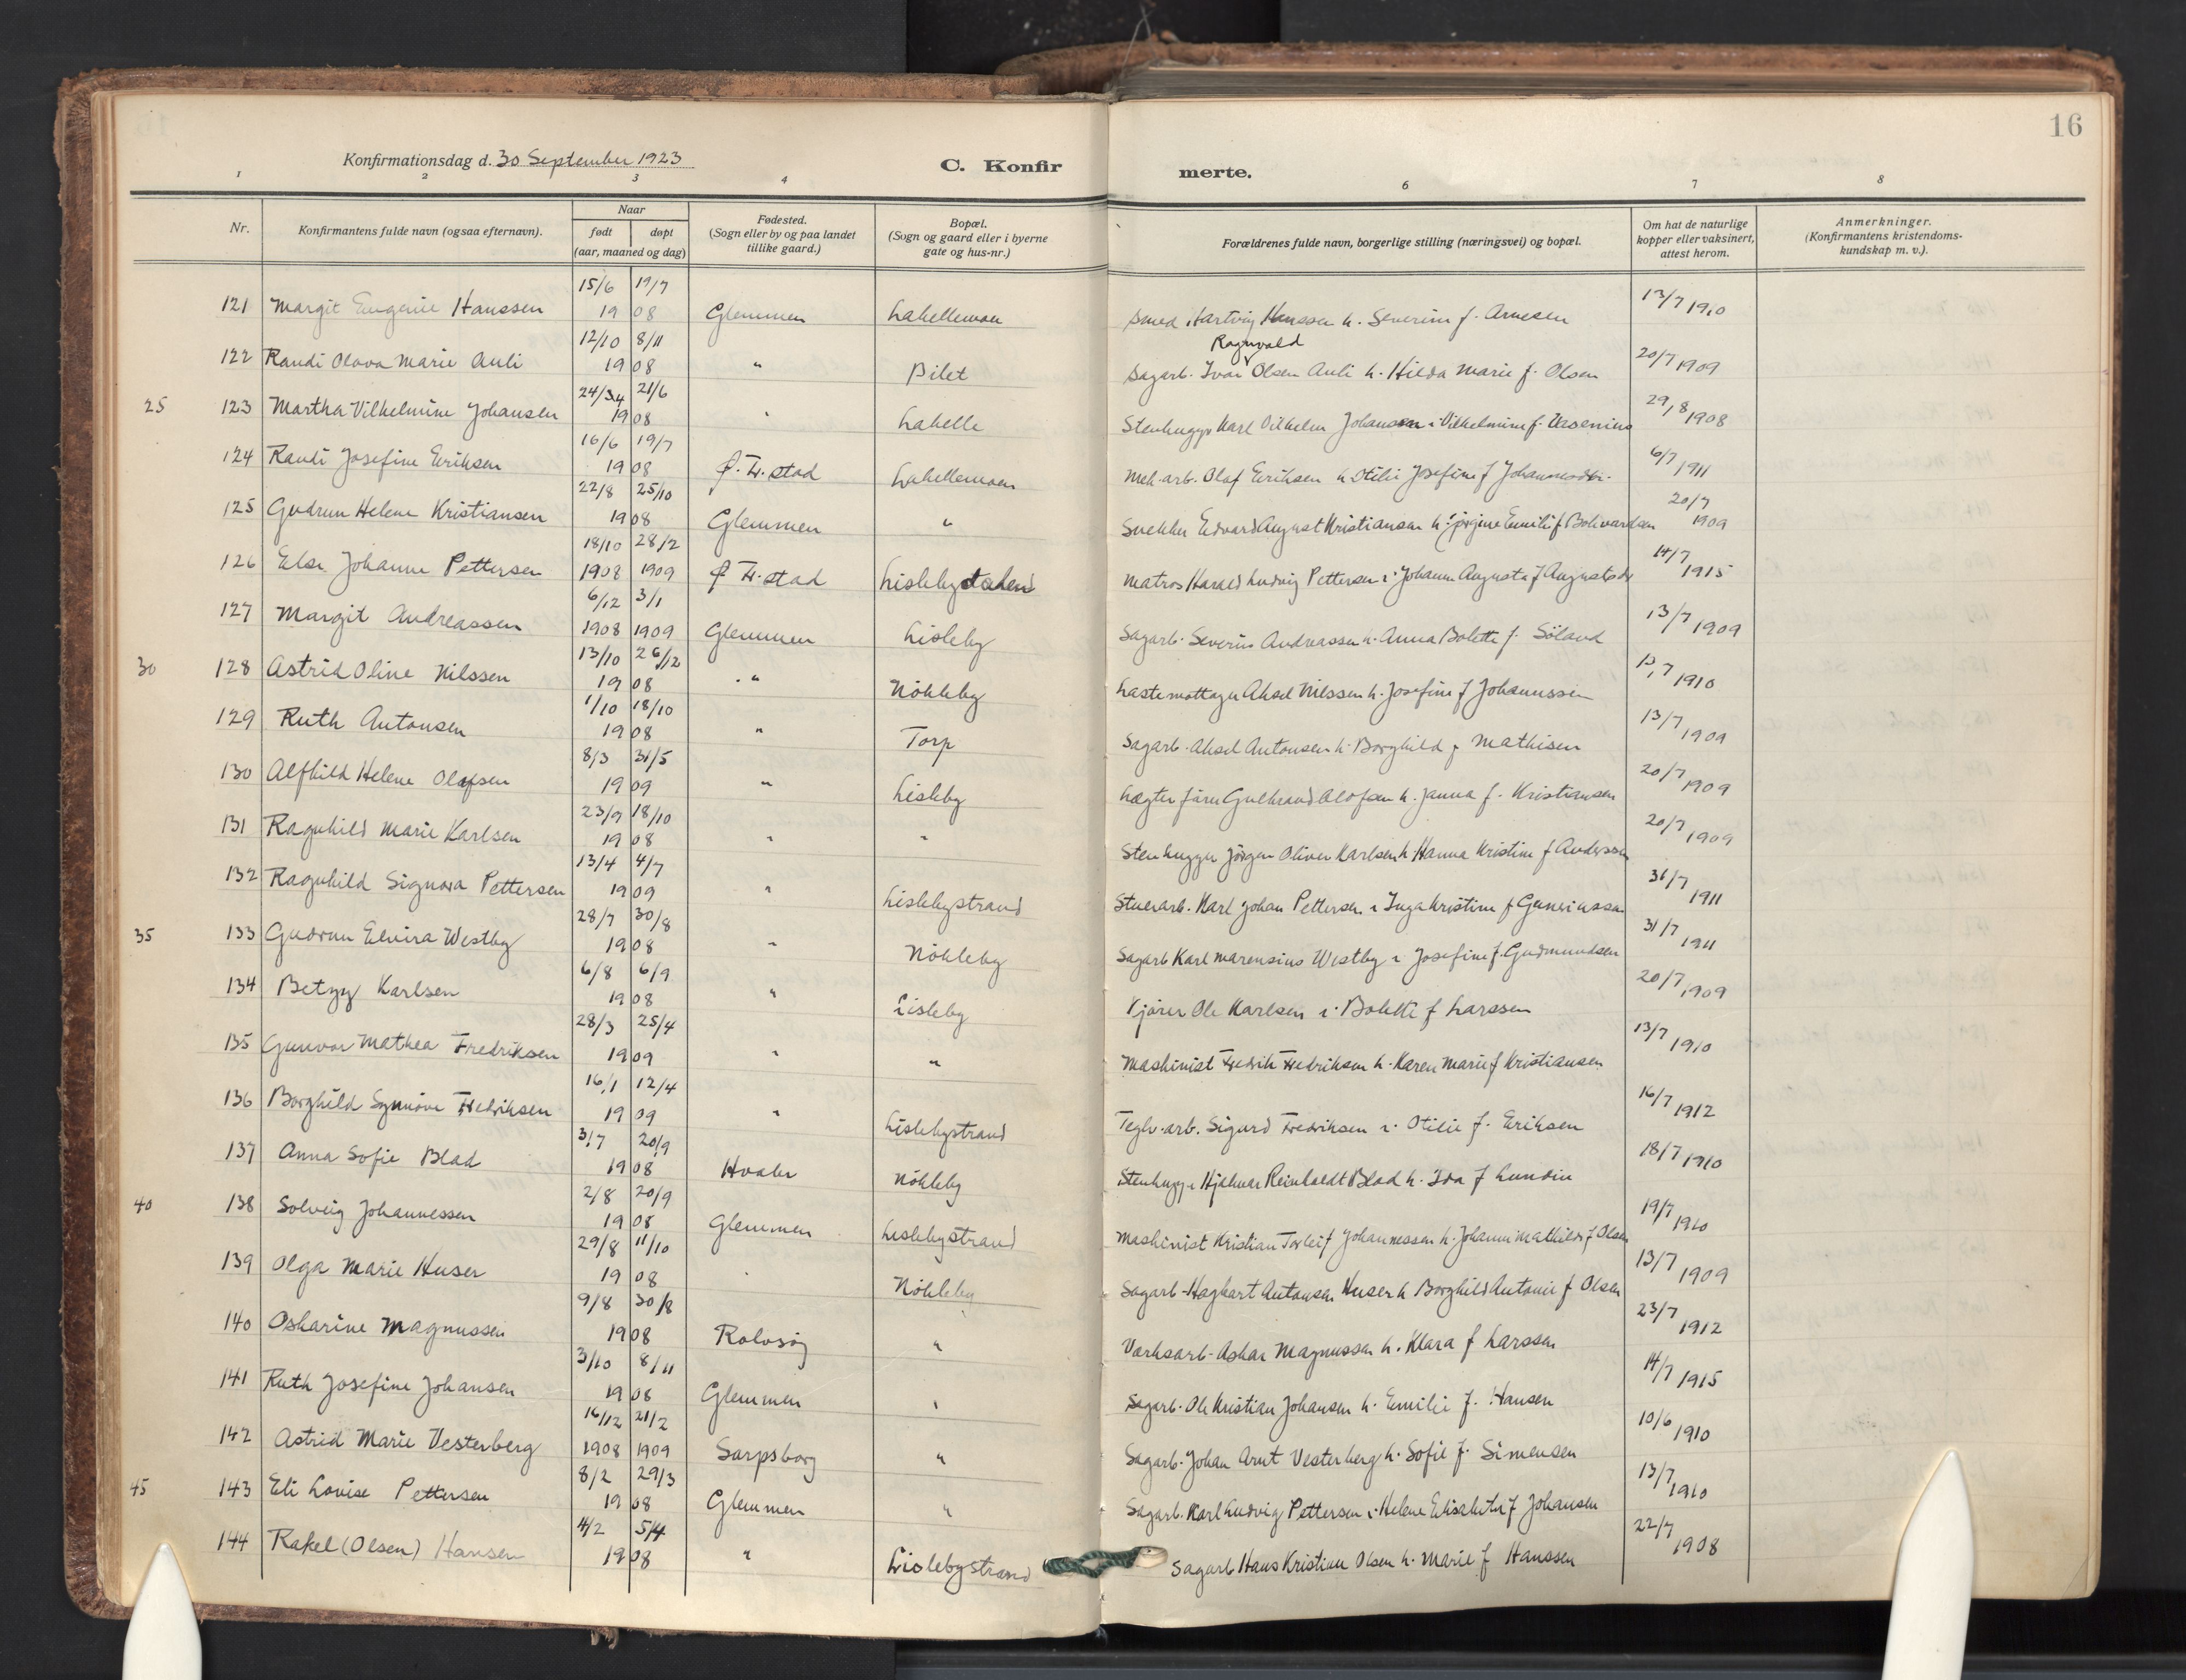 16
Konfirmationsdag d. 30 September 1923
C. Konfir merte.
1 2 3 4 6 7 8
Nr.
Konfirmantens fulde navn (ogsaa efternavn).
Naar
født døpt
(aar, maaned og dag)
Fødested.
(Sogn eller by og paa landet
tillike gaard.)
Bopæl.
(Sogn og gaard eller i byerne
gate og hus-nr.)
Forældrenes fulde navn, borgerlige stilling (næringsvei) og bopæl.
Om hat de naturlige
kopper eller vaksinert,
attest herom.
Anmerkninger.
(Konfirmantens kristendoms-
kundskap m. v.).
121 Margit Eugenie Hanssen 15/6 19/7 1908 Glemmen Lahellemoen Smed Hartvig Hanssen h. Severine f. Arnesen 13/7 1910
122 Randi Olava Marie Auli 12/10 8/11 1908 " Pilet Sagarb. Ivar Ragnvald Olsen Auli h. Hilda Marie f. Olsen 20/7 1909
25 123 Martha Vilhelmine Johansen 24/4 21/6 1908 " Lahelle Stenhugger Karl Vilhelm Johansen Vilhelmine f. 29/8 1908
124 Randi Josefine Eriksen 16/6 19/7 1908 Fr.stad Lahellemoen Mek.arb. Olaf Eriksen h Otilie Josefine f Johannesdtr. 6/7 1911
125 Gudrun Helene Kristiansen 22/8 25/10 1908 Glemmen " Snekker Edvard August Kristiansen h. Jørgine Emilie f Bolivardsen 20/7 1909
126 Else Johanne Pettersen 18/10 1908 28/2 1909 Fr.stad Lislebydalen Matros Harald Ludvig Pettersen Johanne Augusta f Augustsdr 14/7 1915
127 Margit Andreassen 6/12 1908 3/1 1909 Glemmen Lisleby Sagarb. Severin Andreassen h. Anna Bolette f. Søland 13/7 1909
30 128 Astrid Oline Nilssen 13/10 26/12 1908 " Nøkleby Lastemottager Aksel Nilssen h. Josefine f Johannssen 13/7 1910
129 Ruth Antonsen 1/10 18/10 1908 " Torp Sagarb. Aksel Antonsen h. Borghild f Mathisen 13/7 1909
130 Alfhild Helene Olafsen 8/3 31/5 1909 " Lisleby Lægter Gulbrand Olofsen h. Janna f. Kristiansen 20/7 1909
131 Ragnhild Marie Karlsen 23/9 18/10 1908 " " Stenhugger Jørgen Oliver Karlsen h. Hanna Kristine f Anderssen 20/7 1909
132 Ragnhild Signora Pettersen 13/4 4/7 1909 " Lislebystrand Stuerarb. Karl Johan Pettersen Inga Kristine f 31/7 1911
35 133 Gudrun Elvira Westby 28/7 30/8 1908 " Nøkleby Sagarb Karl Marensius Westby Josefine f. Gudmundsen 31/7 1911
134 Betzy Karlsen 6/8 6/9 1908 " Lisleby Kjører Ole Karlsen Bolette f Larssen 20/7 1909
135 Gunvor Mathea Fredriksen 28/3 25/4 1909 " " Maskinist Fredrik Fredriksen h. Karen Marie f Kristiansen 13/7 1910
136 Borghild Synnøve Fredriksen 16/1 12/4 1909 " Lislebystrand Teglv.arb. Sigurd Fredriksen Otilie f. Eriksen 16/7 1912
137 Anna Sofie Blad 3/7 20/9 1908 Hvaler Nøkleby Stenhugger Hjalmar Reinholdt Blad h. Ida f Lundin 18/7 1910
40 138 Solveig Johannessen 2/8 20/9 1908 Glemmen Lislebystrand Maskinist Kristian Torleif Johannessen h. Johanne Mathilde f Olsen 19/7 1910
139 Olga Marie Huser 29/8 11/10 1908 " Nøkleby Sagarb. Hagbart Antonsen Huser h Borghild Antonie f Olsen 13/7 1909
140 Oskarine Magnussen 9/8 30/8 1908 Rolvsøy " Værksarb. Oskar Magnussen h. Klara f Larssen 23/7 1912
141 Ruth Josefine Johansen 3/10 8/11 1908 Glemmen " Sagarb. Ole Kristian Johansen h. Emilie f. Hansen 14/7 1915
142 Astrid Marie Vesterberg 16/12 1908 21/2 1909 Sarpsborg " Sagarb. Johan Arnt Vesterberg h. Sofie f. Simensen 10/6 1910
45 143 Eli Lovise Pettersen 8/2 29/3 1908 Glemmen " Sagarb. Karl Ludvig Pettersen Helene Elisabeth f Johansen 13/7 1910
144 Rakel (Olsen) Hansen 4/2 5/4 1908 " Lislebystrand Sagarb Hans Kristian Olsen h. Marie f Hanssen 22/7 1908